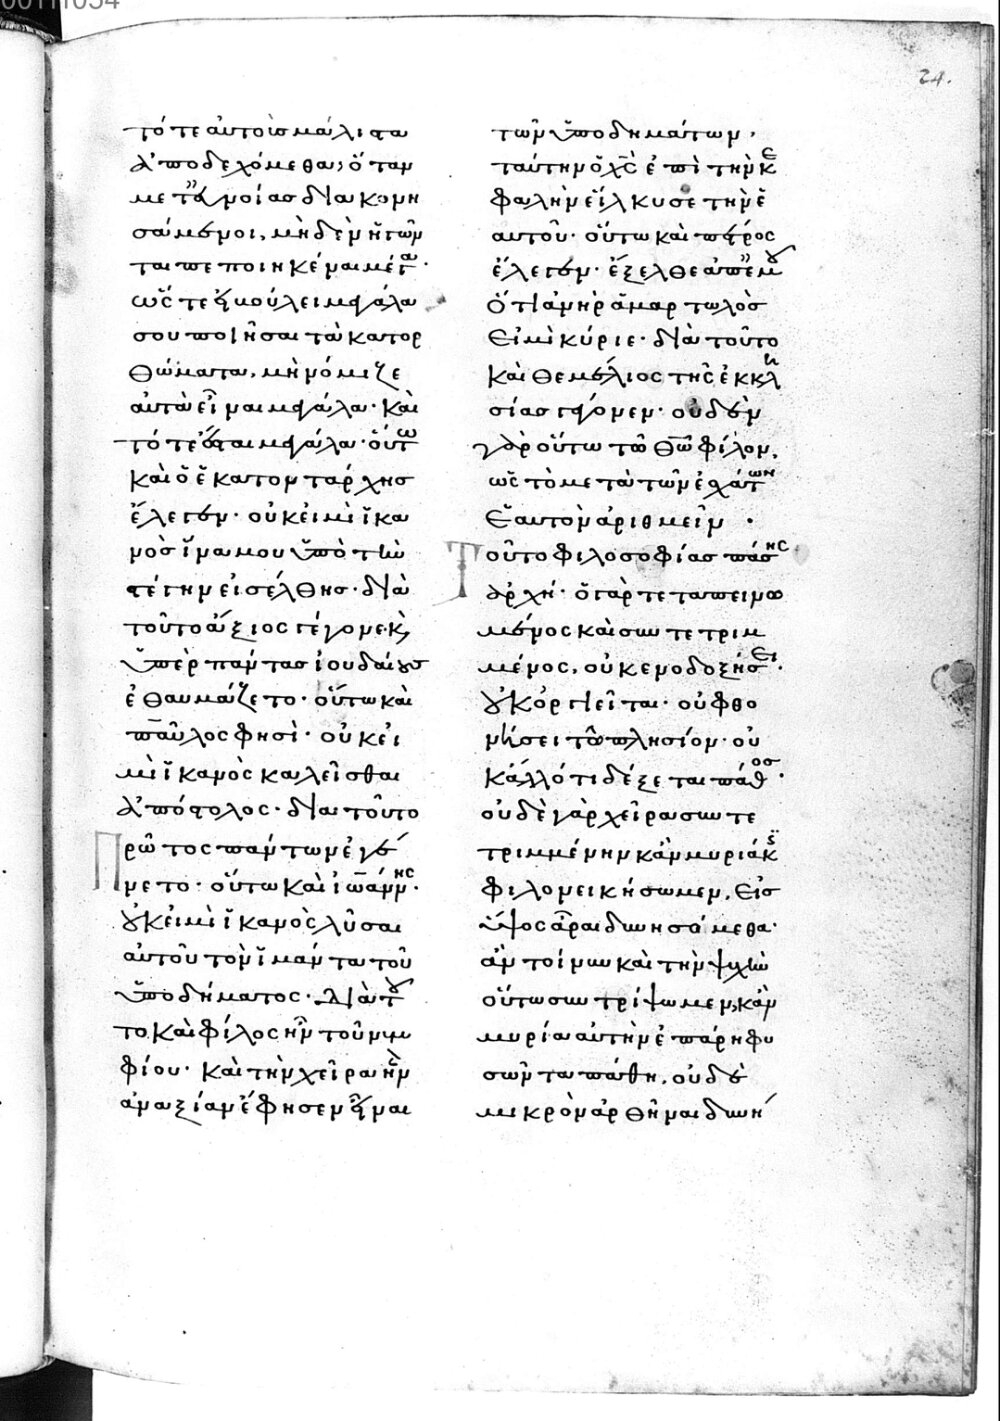 24.
τότε αὐτοὺς μάλιστα
ἀποδεχόμεθα, ὅταν
μετὰ μυρίας διακονη
σάμενοι, μηδὲν ἡγῶν
ται πεποιηκέναι μέγα·
ὥστε καὶ σὺ εἰ μεγάλα
σου ποιῆσαι τὰ κατορ
θώματα, μὴ νόμιζε
αὐτὰ εἶναι μεγάλα· καὶ
τότε ἔσται μεγάλα· οὕτω
καὶ ὁ ἑκατοντάρχης
ἔλεγεν· οὐκ εἰμὶ ἱκα
νὸς ἵνα μου ὑπὸ τὴν
στέγην εἰσέλθης· διὰ
τοῦτο ἄξιος γέγονε κ(αὶ)
ὑπὲρ πάντας ἰουδαίους
ἐθαυμάζετο· οὕτω καὶ
παῦλος φησὶ· οὐκ εἰ
μὶ ἱκανὸς καλεῖσθαι
ἀπόστολος· διὰ τοῦτο
Πρῶτος πάντων ἐγέ
νετο· οὕτω καὶ ἰωάννης·
οὐκ εἰμὶ ἱκανὸς λῦσαι
αὐτοῦ τὸν ἱμάντα τοῦ
ὑποδήματος· διὰ τοῦ
το καὶ φίλος ἦν τοῦ νυμ
φίου· καὶ τὴν χεῖρα ἣν
ἀναξίαν ἔφησεν εἶναι
τῶν ὑποδημάτων,
ταύτην ὁ χ̅ς̅ ἐπὶ τὴν κε
φαλὴν εἵλκυσε τὴν ἑ
αυτοῦ· οὕτω καὶ πέτρος
ἔλεγεν· ἔξελθε ἀπ' ἐμοῦ
ὅτι ἀνὴρ ἁμαρτωλὸς
εἰμὶ κύριε· διὰ τοῦτο
καὶ θεμέλιος τῆς ἐκκλη
σίας γέγονεν· οὐδὲν
γὰρ οὕτω τῶ θ̅ω̅ φίλον,
ὡς τὸ μετὰ τῶν ἐσχάτων
ἑαυτὸν ἀριθμεῖν ·
Τοῦτο φιλοσοφίας πάσης
ἀρχή· ὁ γὰρ τεταπεινω
μένος καὶ συντετριμ
μένος, οὐ κενοδοξήσει·
οὐκ ὀργιεῖται· οὐ φθο
νήσει τῶ πλησίον· οὐ
κ ἄλλό τι δέξεται πάθος·
οὐδὲ γὰρ χεῖρα συντε
τριμμένην κἂν μυριάκ(ις)
φιλονεικήσωμεν, εἰς
ὕψος ἆραι δυνησόμεθα·
ἂν τοίνυν καὶ τὴν ψυχὴν
οὕτω συντρίψωμεν, κἂν
μυρία αὐτὴν ἐπάρη φυ
σῶντα πάθη, οὐδὲ
μικρὸν ἀρθῆναι δυνή